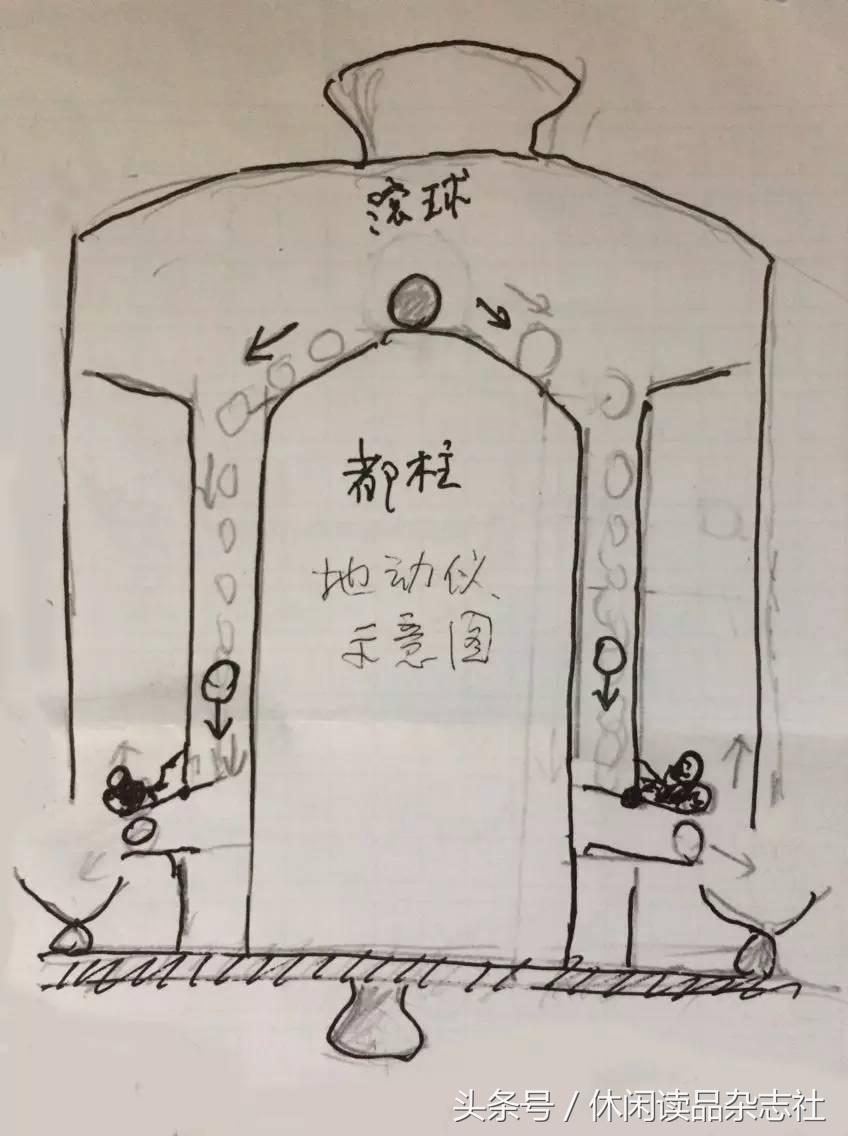 滚球
都柱
地动仪
示意图
头条号 / 休闲读品杂志社